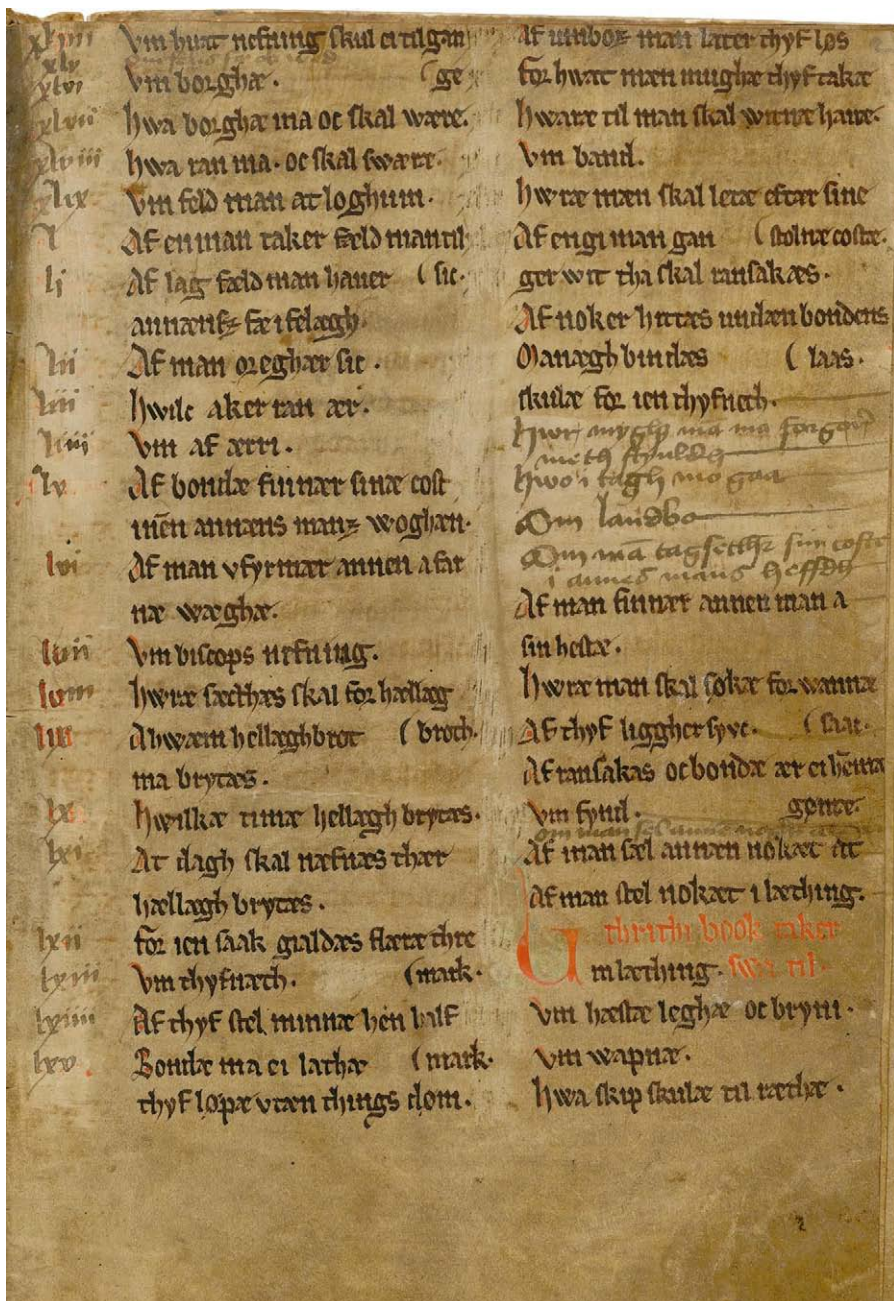 xliiii Vm hwat nefning skal ei til gan
xlv
xlvi Vm borghæ. (ge
xlvii hwa borghæ ma oc skal wære.
xlviii hwa ran ma. oc skal swære.
xlix Vm feld man at loghum.
l Af en man taker fæld man til
li Af lag fæld man hauer (sic.
annænsz fæ i felægh.
lii Af man oreghær sic.
liii hwilc aker ran ær.
liiii Vm af ærri.
lv Af bondæ finnær sinæ cost
i mēn annæns manz woghæn.
lvi Af man vfyrmær annen a far
næ wæghæ.
lvii Vm biscops nefning.
lviii hwræ sæthæs skal for hællæg
lix A hwæm hellægh brot (broth.
ma brytæs.
lx hwilkæ timæ hellægh brytæs.
lxi At dagh skal næfnæs thær
hællægh brytæs.
lxii for ien saak gialdæs flæræ thre
lxiii Vm thyfnæth. (mark.
lxiiii Af thyf stel minnæ hen half
lxv Bondæ ma ei lathæ (mark.
thyf løpæ vtæn things dom.
Af umboz man later thyf løs
for hwat mæn mughæ thyf takæ
hwaræ til man skal witnæ hauæ.
Vm band.
hwræ mæn skal letæ efter sine
Af engi man gan (stolnæ costæ.
ger wit tha skal ransakæs.
Af noker hittæs undæn bondens
Manægh bindæs (laas.
skulæ for ien thyfneth.
hwr myghz ma ma forgøræ
meth skyuldz
hwo i tagh mo gaa
Om landbo
Om mā tagsetthr sin coste
i annes mans heffdh
Af man finnær annen man a
sin hestæ.
hwræ man skal søkæ for wannæ
Af thyf liggher syve. (saar.
Af ransakas oc bondæ ær ei hēma
Vm fynd. gømæ.
om man sel anne
Af man sæl annæn nokær at
Af man stel nokær i læthing.
thrithi book taker
Vm læthing. swa til.
Vm hæstæ leghæ oc bryni.
Vm wapnæ.
hwa skip skulæ til ræthæ.